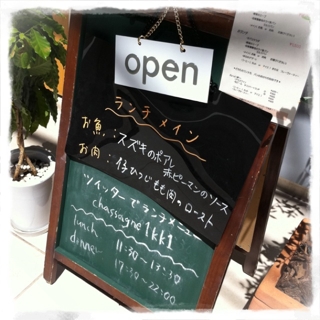 open
ランチメイン
お魚:スズキのポアレ
赤ピーマンのソース
お肉:仔ひつじもも肉のロースト
ツイッターでランチメニュー
chassagne1kk1
lunch 11:30-13:30
dinner 17:30-22:00